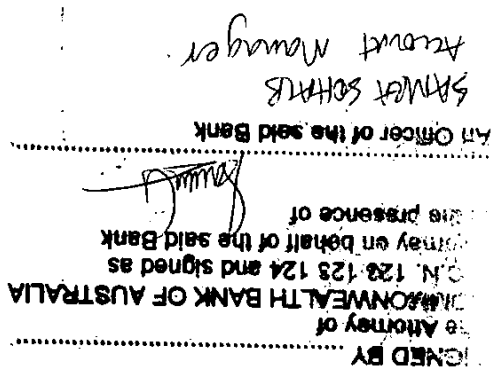 IGNED BY
e Attorney of
COMMONWEALTH BANK OF AUSTRALIA
C.N. 123 123 124 and signed as
orney on behalf of the said Bank
the presence of
An Officer of the said Bank
Account Manager.